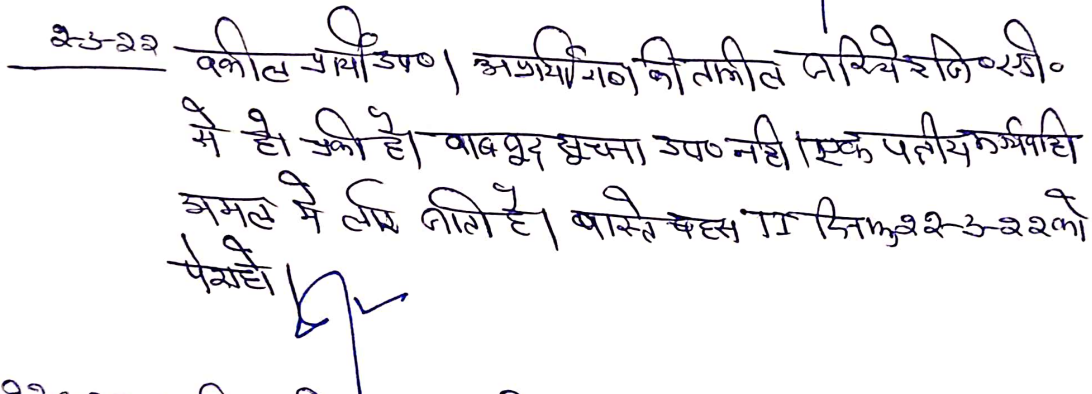 2-3-22 वकील प्रार्थी उप०। अप्रार्थीगण की तामील जरिये रजि०एडी०
से हो चुकी है। बावजूद सूचना उप० नही। एक पक्षीय कार्यवाही
अमल मे लाई जाती है। वास्ते बहस TI दिनांक 22-3-22 को
पेश हो।